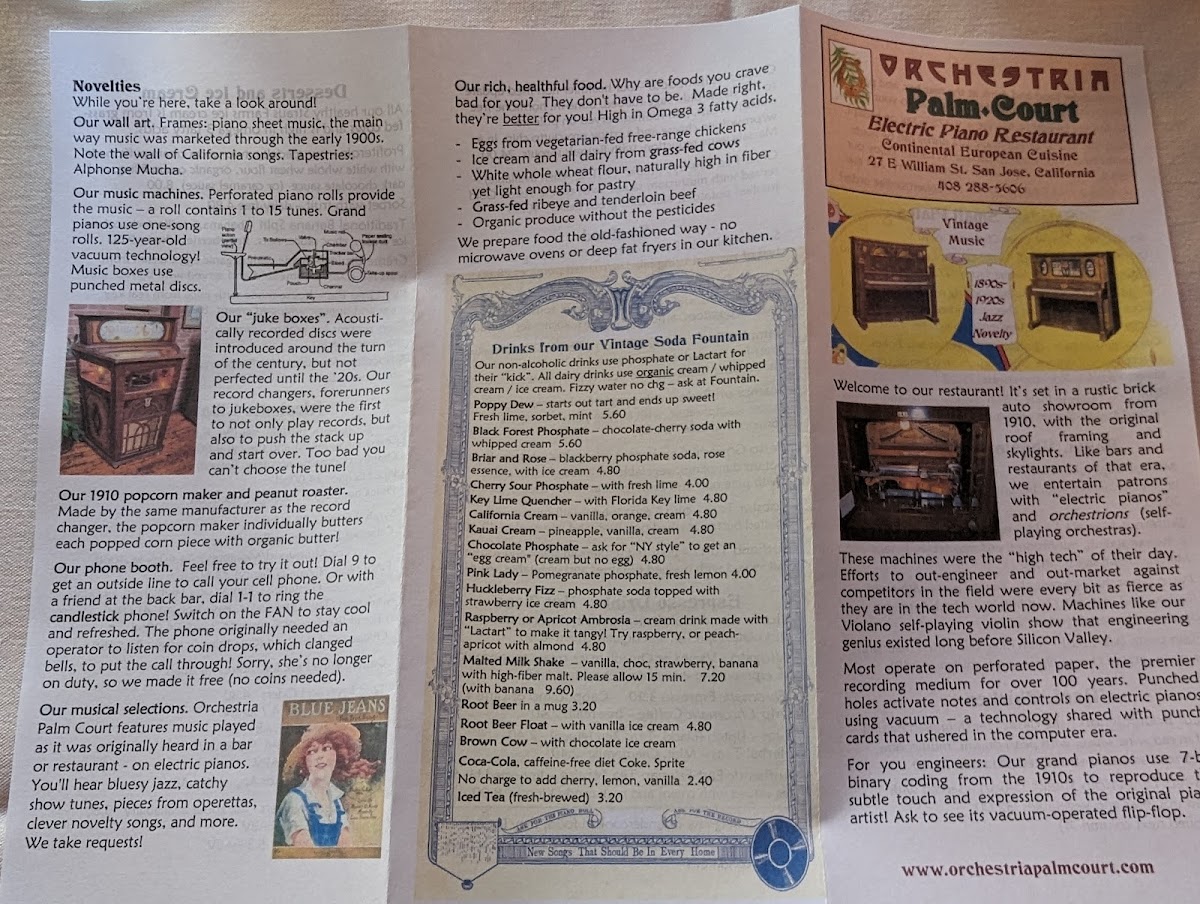 Novelties
While you're here, take a look around!
Our wall art. Frames: piano sheet music, the main
way music was marketed through the early 1900s.
Note the wall of California songs. Tapestries:
Alphonse Mucha.
Our music machines. Perforated piano rolls provide
the music – a roll contains 1 to 15 tunes. Grand
pianos use one-song
rolls. 125-year-old
vacuum technology!
Music boxes use
punched metal discs.
Key
Our "juke boxes". Acousti-
cally recorded discs were
introduced around the turn
of the century, but not
perfected until the '20s. Our
record changers, forerunners
to jukeboxes, were the first
to not only play records, but
also to push the stack up
and start over. Too bad you
can't choose the tune!
Our 1910 popcorn maker and peanut roaster.
Made by the same manufacturer as the record
changer, the popcorn maker individually butters
each popped corn piece with organic butter!
Our phone booth. Feel free to try it out! Dial 9 to
get an outside line to call your cell phone. Or with
a friend at the back bar, dial 1-1 to ring the
candlestick phone! Switch on the FAN to stay cool
and refreshed. The phone originally needed an
operator to listen for coin drops, which clanged
bells, to put the call through! Sorry, she's no longer
on duty, so we made it free (no coins needed).
Our musical selections. Orchestria
Palm Court features music played
as it was originally heard in a bar
or restaurant - on electric pianos.
You'll hear bluesy jazz, catchy
show tunes, pieces from operettas,
clever novelty songs, and more.
We take requests!
BLUE JEANS
Our rich, healthful food. Why are foods you crave
bad for you? They don't have to be. Made right,
they're better for you! High in Omega 3 fatty acids.
- Eggs from vegetarian-fed free-range chickens
- Ice cream and all dairy from grass-fed cows
- White whole wheat flour, naturally high in fiber
yet light enough for pastry
- Grass-fed ribeye and tenderloin beef
- Organic produce without the pesticides
We prepare food the old-fashioned way - no
microwave ovens or deep fat fryers in our kitchen.
Drinks from our Vintage Soda Fountain
Our non-alcoholic drinks use phosphate or Lactart for
their "kick". All dairy drinks use organic cream / whipped
cream / ice cream. Fizzy water no chg – ask at Fountain.
Poppy Dew – starts out tart and ends up sweet!
Fresh lime, sorbet, mint 5.60
Black Forest Phosphate – chocolate-cherry soda with
whipped cream 5.60
Briar and Rose – blackberry phosphate soda, rose
essence, with ice cream 4.80
Cherry Sour Phosphate – with fresh lime 4.00
Key Lime Quencher – with Florida Key lime 4.80
California Cream – vanilla, orange, cream 4.80
Kauai Cream – pineapple, vanilla, cream 4.80
Chocolate Phosphate – ask for "NY style" to get an
"egg cream" (cream but no egg) 4.80
Pink Lady – Pomegranate phosphate, fresh lemon 4.00
Huckleberry Fizz – phosphate soda topped with
strawberry ice cream 4.80
Raspberry or Apricot Ambrosia – cream drink made with
"Lactart" to make it tangy! Try raspberry, or peach-
apricot with almond 4.80
Malted Milk Shake – vanilla, choc, strawberry, banana
with high-fiber malt. Please allow 15 min. 7.20
(with banana 9.60)
Root Beer in a mug 3.20
Root Beer Float – with vanilla ice cream 4.80
Brown Cow – with chocolate ice cream
Coca-Cola, caffeine-free diet Coke. Sprite
No charge to add cherry, lemon, vanilla 2.40
Iced Tea (fresh-brewed) 3.20
New Songs That Should Be In Every Home
ORCHESTRIA
Palm Court
Electric Piano Restaurant
Continental European Cuisine
27 E William St, San Jose, California
408 288-5606
Vintage
Music
1890s-
1920s
Jazz
Novelty
Welcome to our restaurant! It's set in a rustic brick
auto showroom from
1910, with the original
roof framing and
skylights. Like bars and
restaurants of that era,
we entertain patrons
with "electric pianos"
and orchestrions (self-
playing orchestras).
These machines were the "high tech" of their day.
Efforts to out-engineer and out-market against
competitors in the field were every bit as fierce as
they are in the tech world now. Machines like our
Violano self-playing violin show that engineering
genius existed long before Silicon Valley.
Most operate on perforated paper, the premier
recording medium for over 100 years. Punched
holes activate notes and controls on electric pianos
using vacuum – a technology shared with punch
cards that ushered in the computer era.
For you engineers: Our grand pianos use 7-b
binary coding from the 1910s to reproduce t
subtle touch and expression of the original pia
artist! Ask to see its vacuum-operated flip-flop.
www.orchestriapalmcourt.com